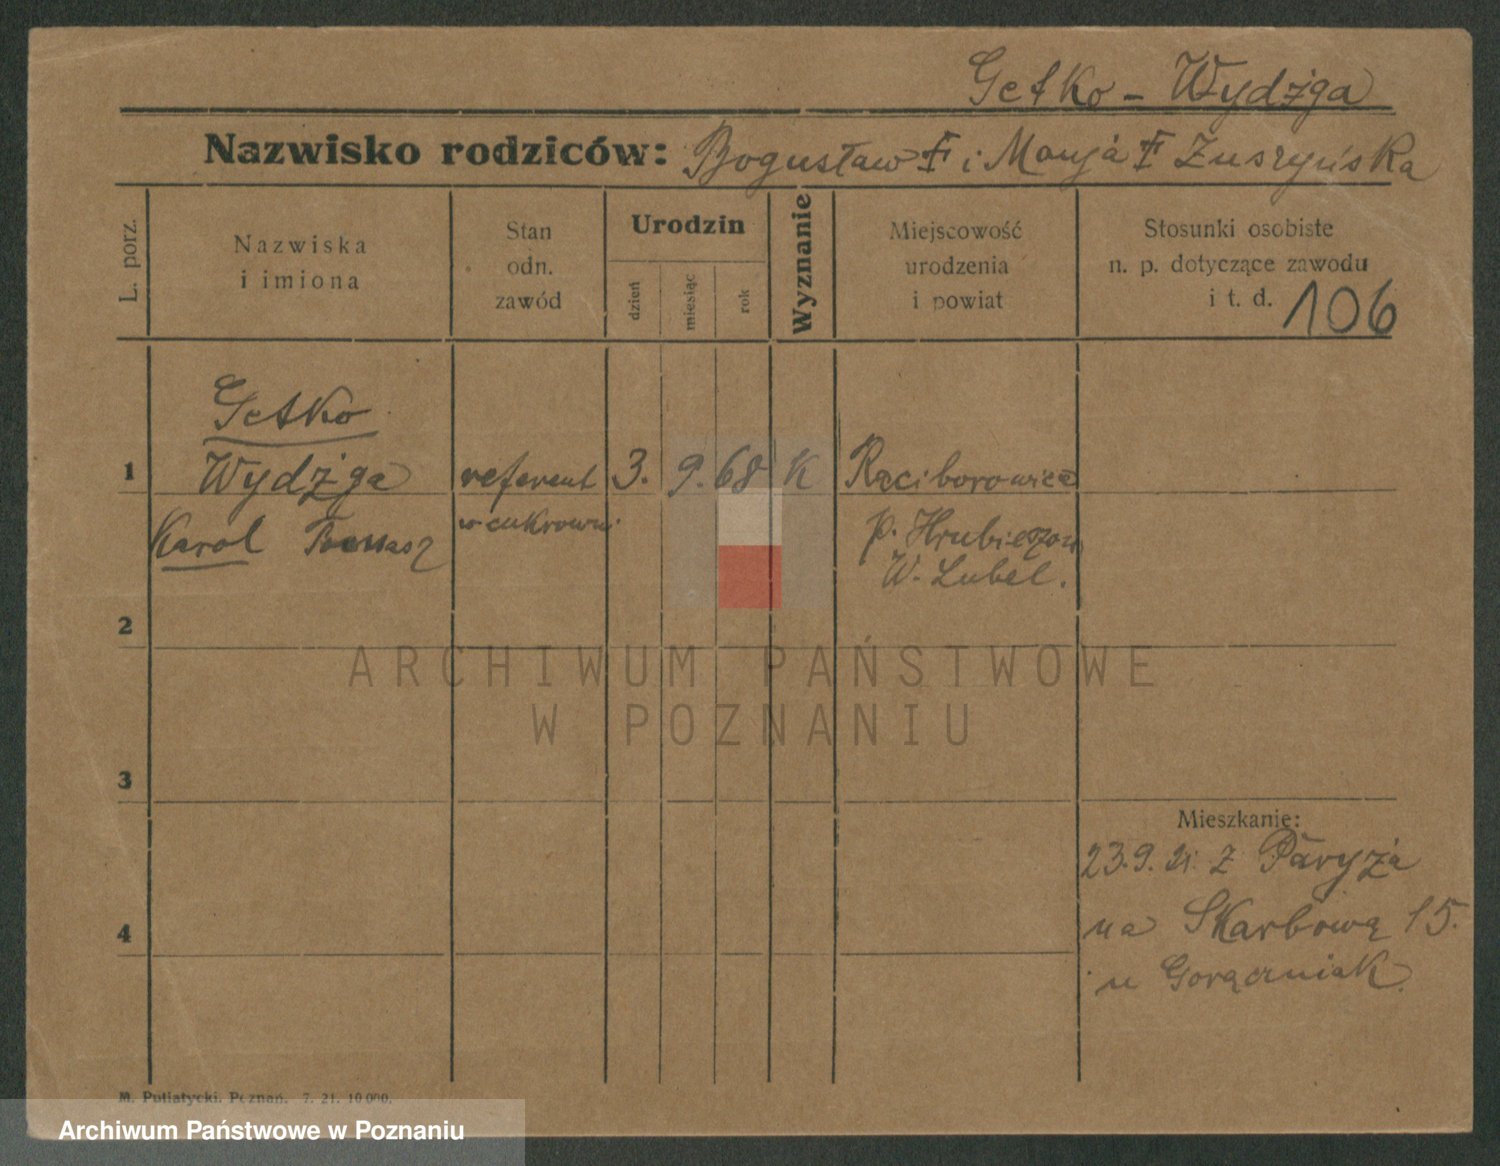 Getko - Wydżga
Nazwisko rodziców: Bogusław i Marja Zuszyńska
L. porz.
Nazwiska
i imiona
Stan
odn.
zawód
Urodzin
dzień
miesiąc
rok
Wyznanie
Miejscowość
urodzenia
i powiat
Stosunki osobiste
n. p. dotyczące zawodu
i t. d. 106
Getko
1 Wydżga referent 3. 9. 68 K Raciborowice
Karol Tomasz w cukrowni
p. Hrubieszow
W. Lubel.
2
ARCHIWUM PAŃSTWOWE
W POZNANIU
3
Mieszkanie:
23.9.21. z Paryża
4 na Skarbową 15.
u Gorączniak.
M. Putiatycki. Poznań. 7. 21. 10 000.
Archiwum Państwowe w Poznaniu